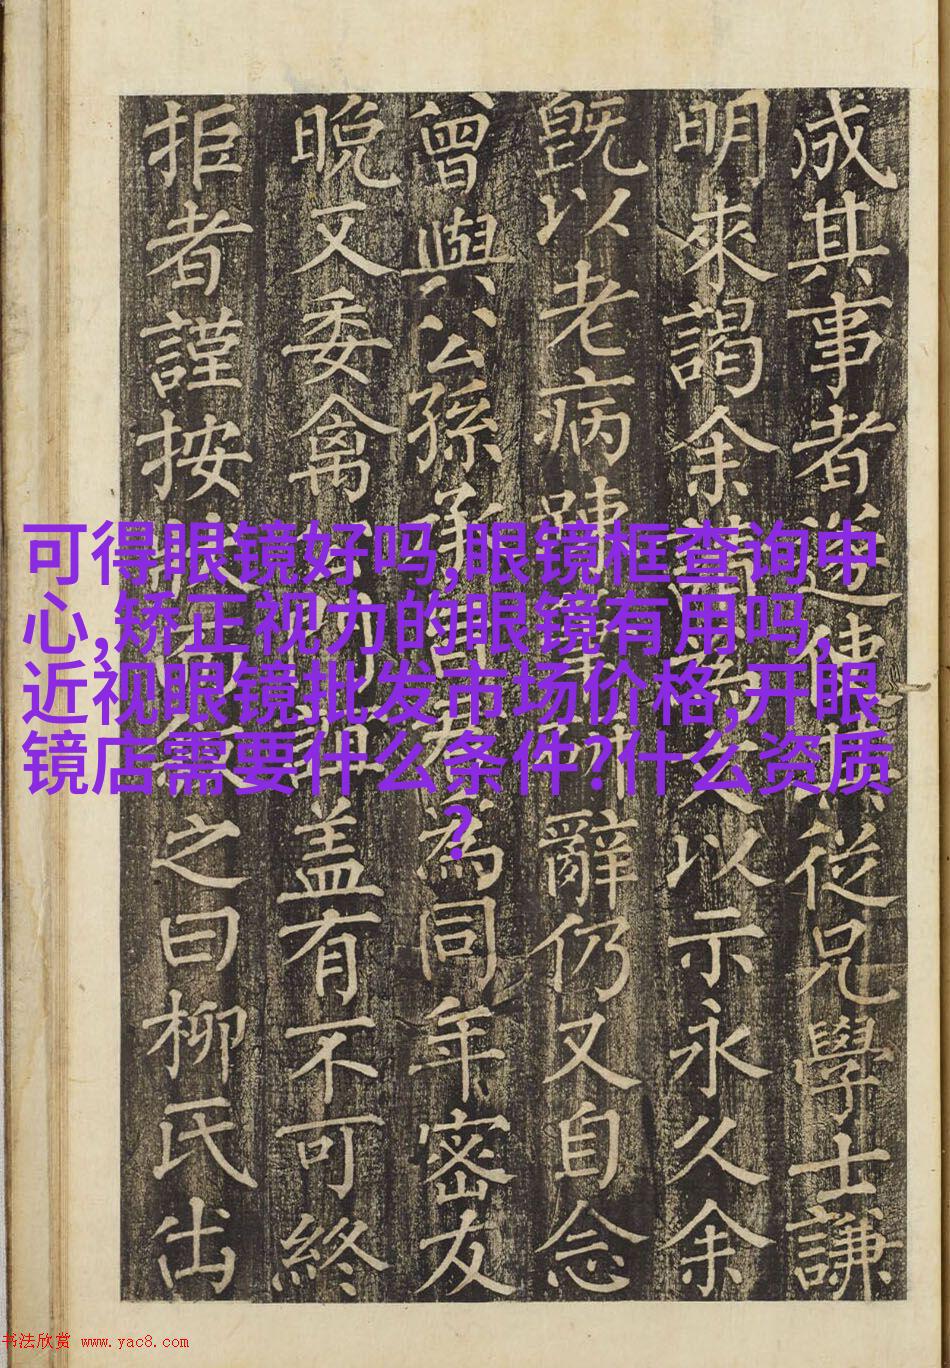 可得眼镜好吗,眼镜框查询中
心,矫正视力的眼镜有用吗,
近视眼镜批发市场价格,开眼
镜店需要什么条件?什么资质
?
成其事者遂從兄學士謙
明來謁余以示永久余
既以老病踈辭仍又自念
曾與公孫為同年密友
晩又委禽盖有不可終
拒者謹按之曰柳氏出
书法欣赏 www.yac8.com